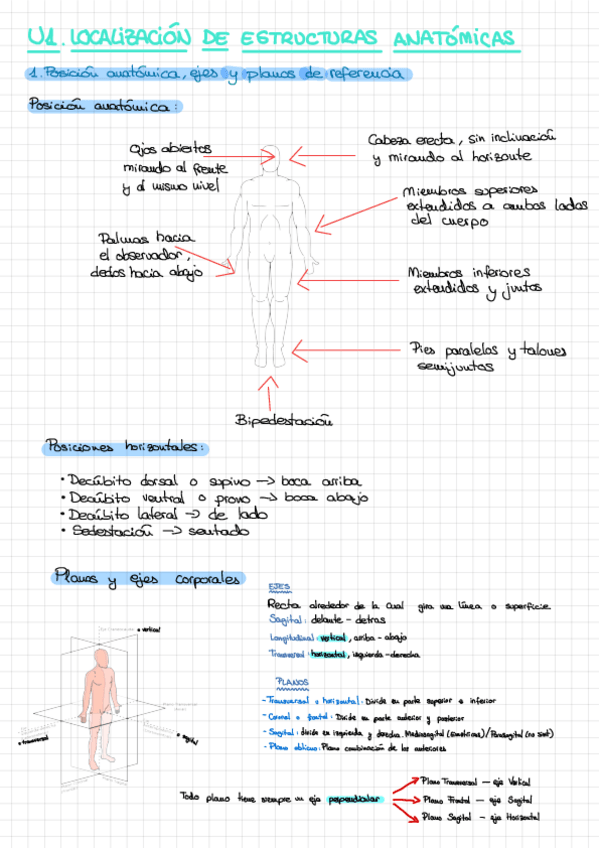 U1. LOCALIZACIÓN DE ESTRUCTURAS ANATÓMICAS
1. Posición anatómica, ejes y planos de referencia
Posición anatómica:
Ojos abiertos
mirando al frente
y al mismo nivel
Cabeza erecta, sin inclinación
y mirando al horizonte
Miembros superiores
extendidos a ambos lados
del cuerpo
Palmas hacia
el observador,
dedos hacia abajo
Miembros inferiores
extendidos y juntos
Pies paralelos y talones
semijuntos
Bipedestación
Posiciones horizontales:
• Decúbito dorsal o supino -> boca arriba
• Decúbito ventral o prono -> boca abajo
• Decúbito lateral -> de lado
• Sedestación -> sentado
Planos y ejes corporales
EJES
Recta alrededor de la cual gira una línea o superficie
Sagital: delante - detras
Longitudinal: vertical, arriba - abajo
Transversal: horizontal, izquierda - derecha
vertical
transversal
sagital
PLANOS
- Transversal o horizontal: Divide en parte superior e inferior
- Coronal o frontal: Divide en parte anterior y posterior
- Sagital: divide en izquierda y derecha. Mediosagital (simétricos)/Parasagital (no simt)
- Plano oblicuo: Plano combinación de los anteriores
Todo plano tiene siempre un eje perpendicular
Plano Transversal — eje Vertical
Plano Frontal — eje Sagital
Plano Sagital — eje Horizontal